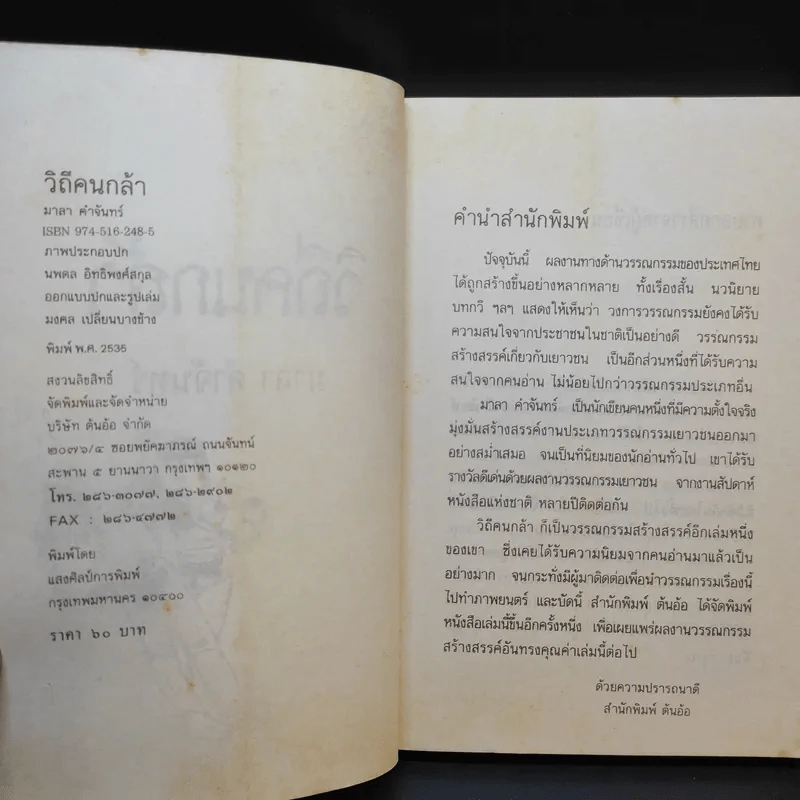 วิถีคนกล้า
มาลา คำจันทร์
ISBN 974-516-248-5
ภาพประกอบปก
นพดล อิทธิพงศ์สกุล
ออกแบบปกและรูปเล่ม
มงคล เปลี่ยนบางช้าง
พิมพ์ พ.ศ. 2535
สงวนลิขสิทธิ์
จัดพิมพ์และจัดจำหน่าย
บริษัท ต้นอ้อ จำกัด
๒๐๗๖/๔ ซอยพยัคฆาภรณ์ ถนนจันทน์
สะพาน ๕ ยานนาวา กรุงเทพฯ ๑๐๑๒๐
โทร. ๒๘๖-๓๐๗๗, ๒๘๖-๒๙๐๒
FAX : ๒๘๖-๔๗๗๒
พิมพ์โดย
แสงศิลป์การพิมพ์
กรุงเทพมหานคร ๑๐๔๐๐
ราคา ๖๐ บาท
คำนำสำนักพิมพ์
ปัจจุบันนี้ ผลงานทางด้านวรรณกรรมของประเทศไทย
ได้ถูกสร้างขึ้นอย่างหลากหลาย ทั้งเรื่องสั้น นวนิยาย
บทกวี ฯลฯ แสดงให้เห็นว่า วงการวรรณกรรมยังคงได้รับ
ความสนใจจากประชาชนในชาติเป็นอย่างดี วรรณกรรม
สร้างสรรค์เกี่ยวกับเยาวชน เป็นอีกส่วนหนึ่งที่ได้รับความ
สนใจจากคนอ่าน ไม่น้อยไปกว่าวรรณกรรมประเภทอื่น
มาลา คำจันทร์ เป็นนักเขียนคนหนึ่งที่มีความตั้งใจจริง
มุ่งมั่นสร้างสรรค์งานประเภทวรรณกรรมเยาวชนออกมา
อย่างสม่ำเสมอ จนเป็นที่นิยมของนักอ่านทั่วไป เขาได้รับ
รางวัลดีเด่นด้วยผลงานวรรณกรรมเยาวชน จากงานสัปดาห์
หนังสือแห่งชาติ หลายปีติดต่อกัน
วิถีคนกล้า ก็เป็นวรรณกรรมสร้างสรรค์อีกเล่มหนึ่ง
ของเขา ซึ่งเคยได้รับความนิยมจากคนอ่านมาแล้วเป็น
อย่างมาก จนกระทั่งมีผู้มาติดต่อเพื่อนำวรรณกรรมเรื่องนี้
ไปทำภาพยนตร์ และบัดนี้ สำนักพิมพ์ ต้นอ้อ ได้จัดพิมพ์
หนังสือเล่มนี้ขึ้นอีกครั้งหนึ่ง เพื่อเผยแพร่ผลงานวรรณกรรม
สร้างสรรค์อันทรงคุณค่าเล่มนี้ต่อไป
ด้วยความปรารถนาดี
สำนักพิมพ์ ต้นอ้อ